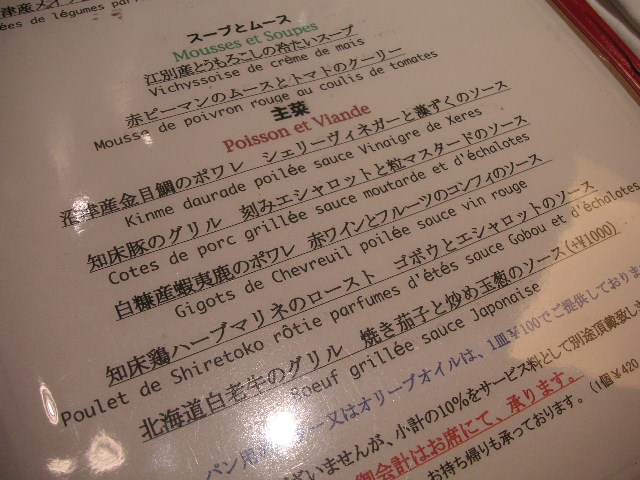 津産メイ
ées de légumes par
スープとムース
Mousses et Soupes
江別産とうもろこしの冷たいスープ
Vichyssoise de crème de mais
赤ピーマンのムースとトマトのクーリー
Mousse de poivron rouge au coulis de tomates
主菜
Poisson et Viande
沼津産金目鯛のポワレ シェリーヴィネガーと藻ずくのソース
Kinme daurade poilée sauce Vinaigre de Xeres
知床豚のグリル 刻みエシャロットと粒マスタードのソース
Cotes de porc grillée sauce moutarde et d'échalotes
白糠産蝦夷鹿のポワレ 赤ワインとフルーツのコンフィのソース
Gigots de Chevreuil poilée sauce vin rouge
知床鶏ハーブマリネのロースト ゴボウとエシャロットのソース
Poulet de Shiretoko rôtie parfumes d'étés sauce Gobou et d'échalotes
北海道白老牛のグリル 焼き茄子と炒め玉葱のソース(+¥1000)
Boeuf grillée sauce Japonaise
パン用 ー又はオリーブオイルは、1皿¥100でご提供しておりま
ざいませんが、小計の10%をサービス料として別途頂戴致し
御会計はお席にて、承ります。
お持ち帰りも承っております。(1個¥420